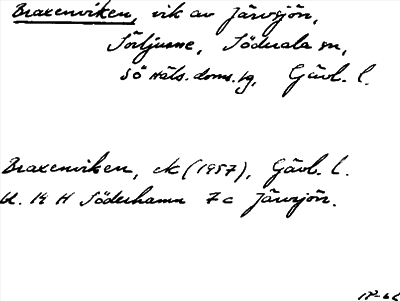 Braxenviken, vik av Järvsjön,
Sörljusne, Söderala sn,
sö Häls. doms. tg, Gävl. l.
Braxenviken, ek (1957), Gävl. l.
bl. 14 H Söderhamn 7c Järvsjön.